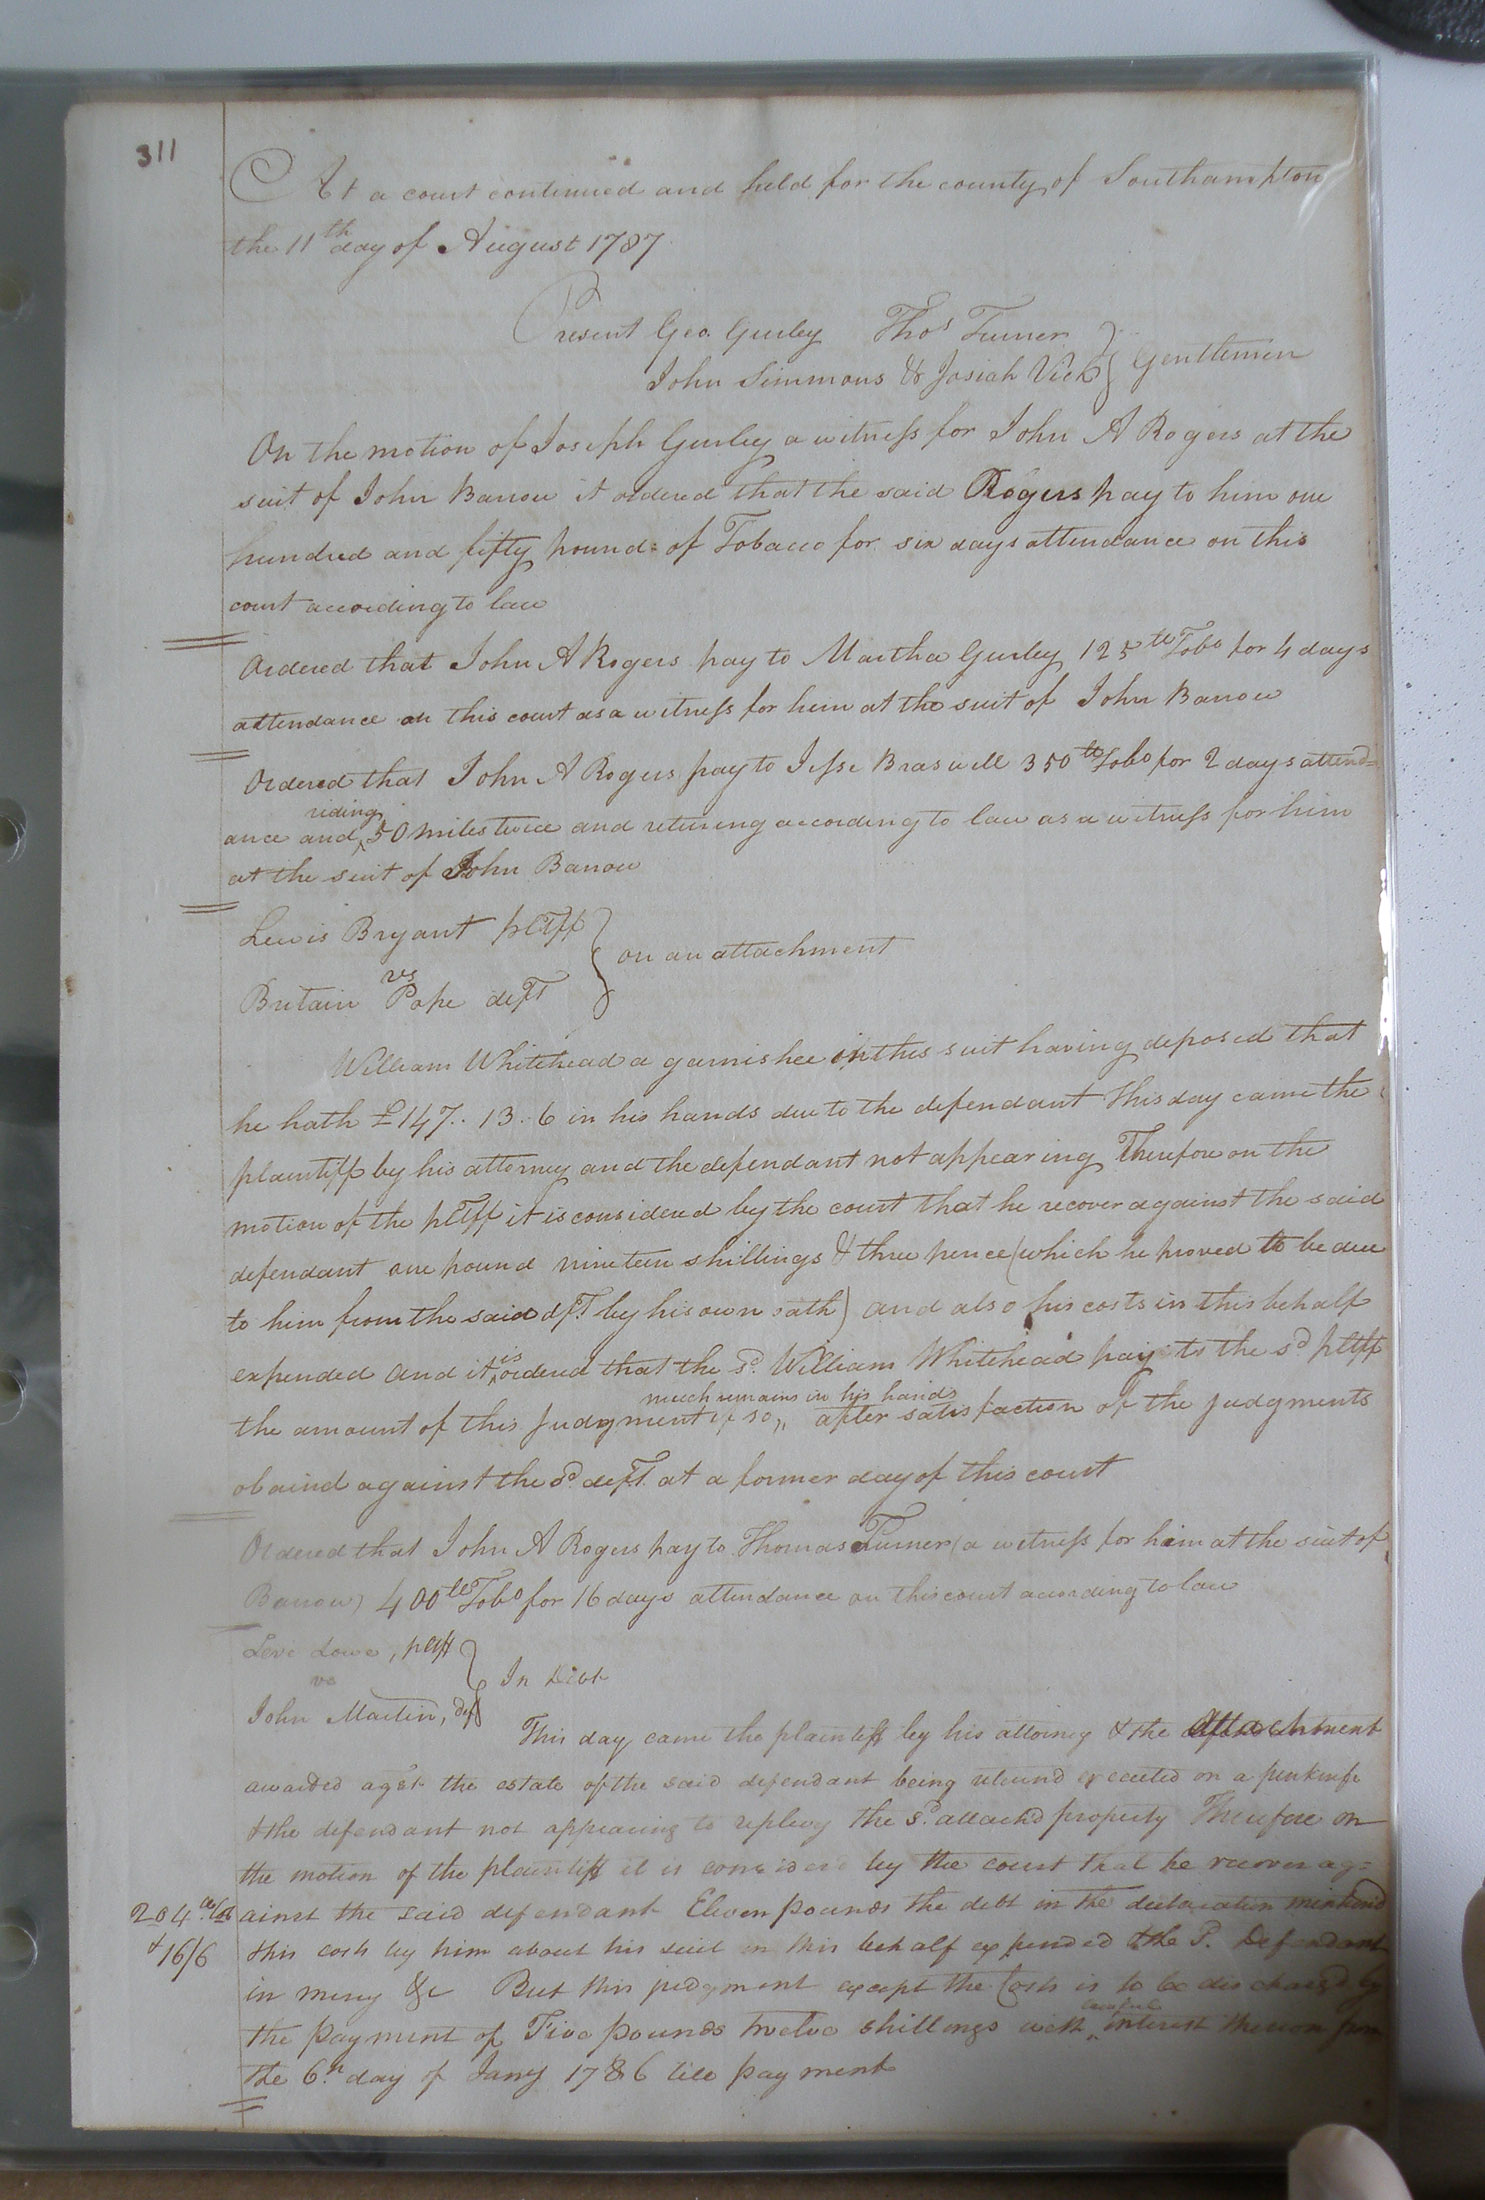 311
At a court continued and held for the county of Southampton
the 11th day of August 1787
Present Geo. Gurley Thos Turner
John Simmons & Josiah Vick } Gentlemen
On the motion of Joseph Gurley a witness for John A Rogers at the
suit of John Barrow it ordered that the said Rogers pay to him one
hundred and fifty pounds of Tobacco for six days attendance on this
court according to law
Ordered that John A Rogers pay to Martha Gurley 125 lb Tobo for 4 days
attendance on this court as a witness for him at the suit of John Barrow
Ordered that John A Rogers pay to Jesse Braswell 350 lb Tobo for 2 days attend=
riding
ance and ^ 50 miles twice and returning according to law as a witness for him
at the suit of John Barrow
Lewis Bryant pltff
vs } on an attachment
Britain Pope deft
William Whitehead a garnishee in this suit having deposed that
he hath £147.. 13.. 6 in his hands due to the defendant This day came the
plaintiff by his attorney and the defendant not appearing Therefore on the
motion of the pltff it is considered by the court that he recover against the said
defendant one pound nineteen shillings & three pence (which he proved to be due
to him from the said dft. by his own oath) and also his costs in this behalf
expended and it ^is ordered that the sd. William Whitehead pay to the sd pltff
much remains in his hands
the amount of this Judgment if so ^ after satisfaction of the Judgments
obaind against the sd deft. at a former day of this court
Ordered that John A Rogers pay to Thomas Turner (a witness for him at the suit of
Barrow) 400 lb Tobo for 16 days attendance on this court according to law
Levi Lowe, pltff
vs } In Debt
John Martin, deft
This day came the plaintiff by his attorney & the attachment
awarded agst the estate of the said defendant being returnd executed on a penknife
& the defendant not appearing to replevy the sd. attachd property Therefore on
the motion of the plaintiff it is considered by the court that he recover ag=
204
ainst the said defendant Eleven pounds the debt in the declaration mentiond
& 16/6
& his costs by him about his suit in this behalf expended & the sd. Defendant
in mercy &c But this judgment except the Costs is to be dischargd by
lawful
the payment of Five pounds twelve shillings with ^ interest thereon from
the 6th day of Jany 1786 till payment